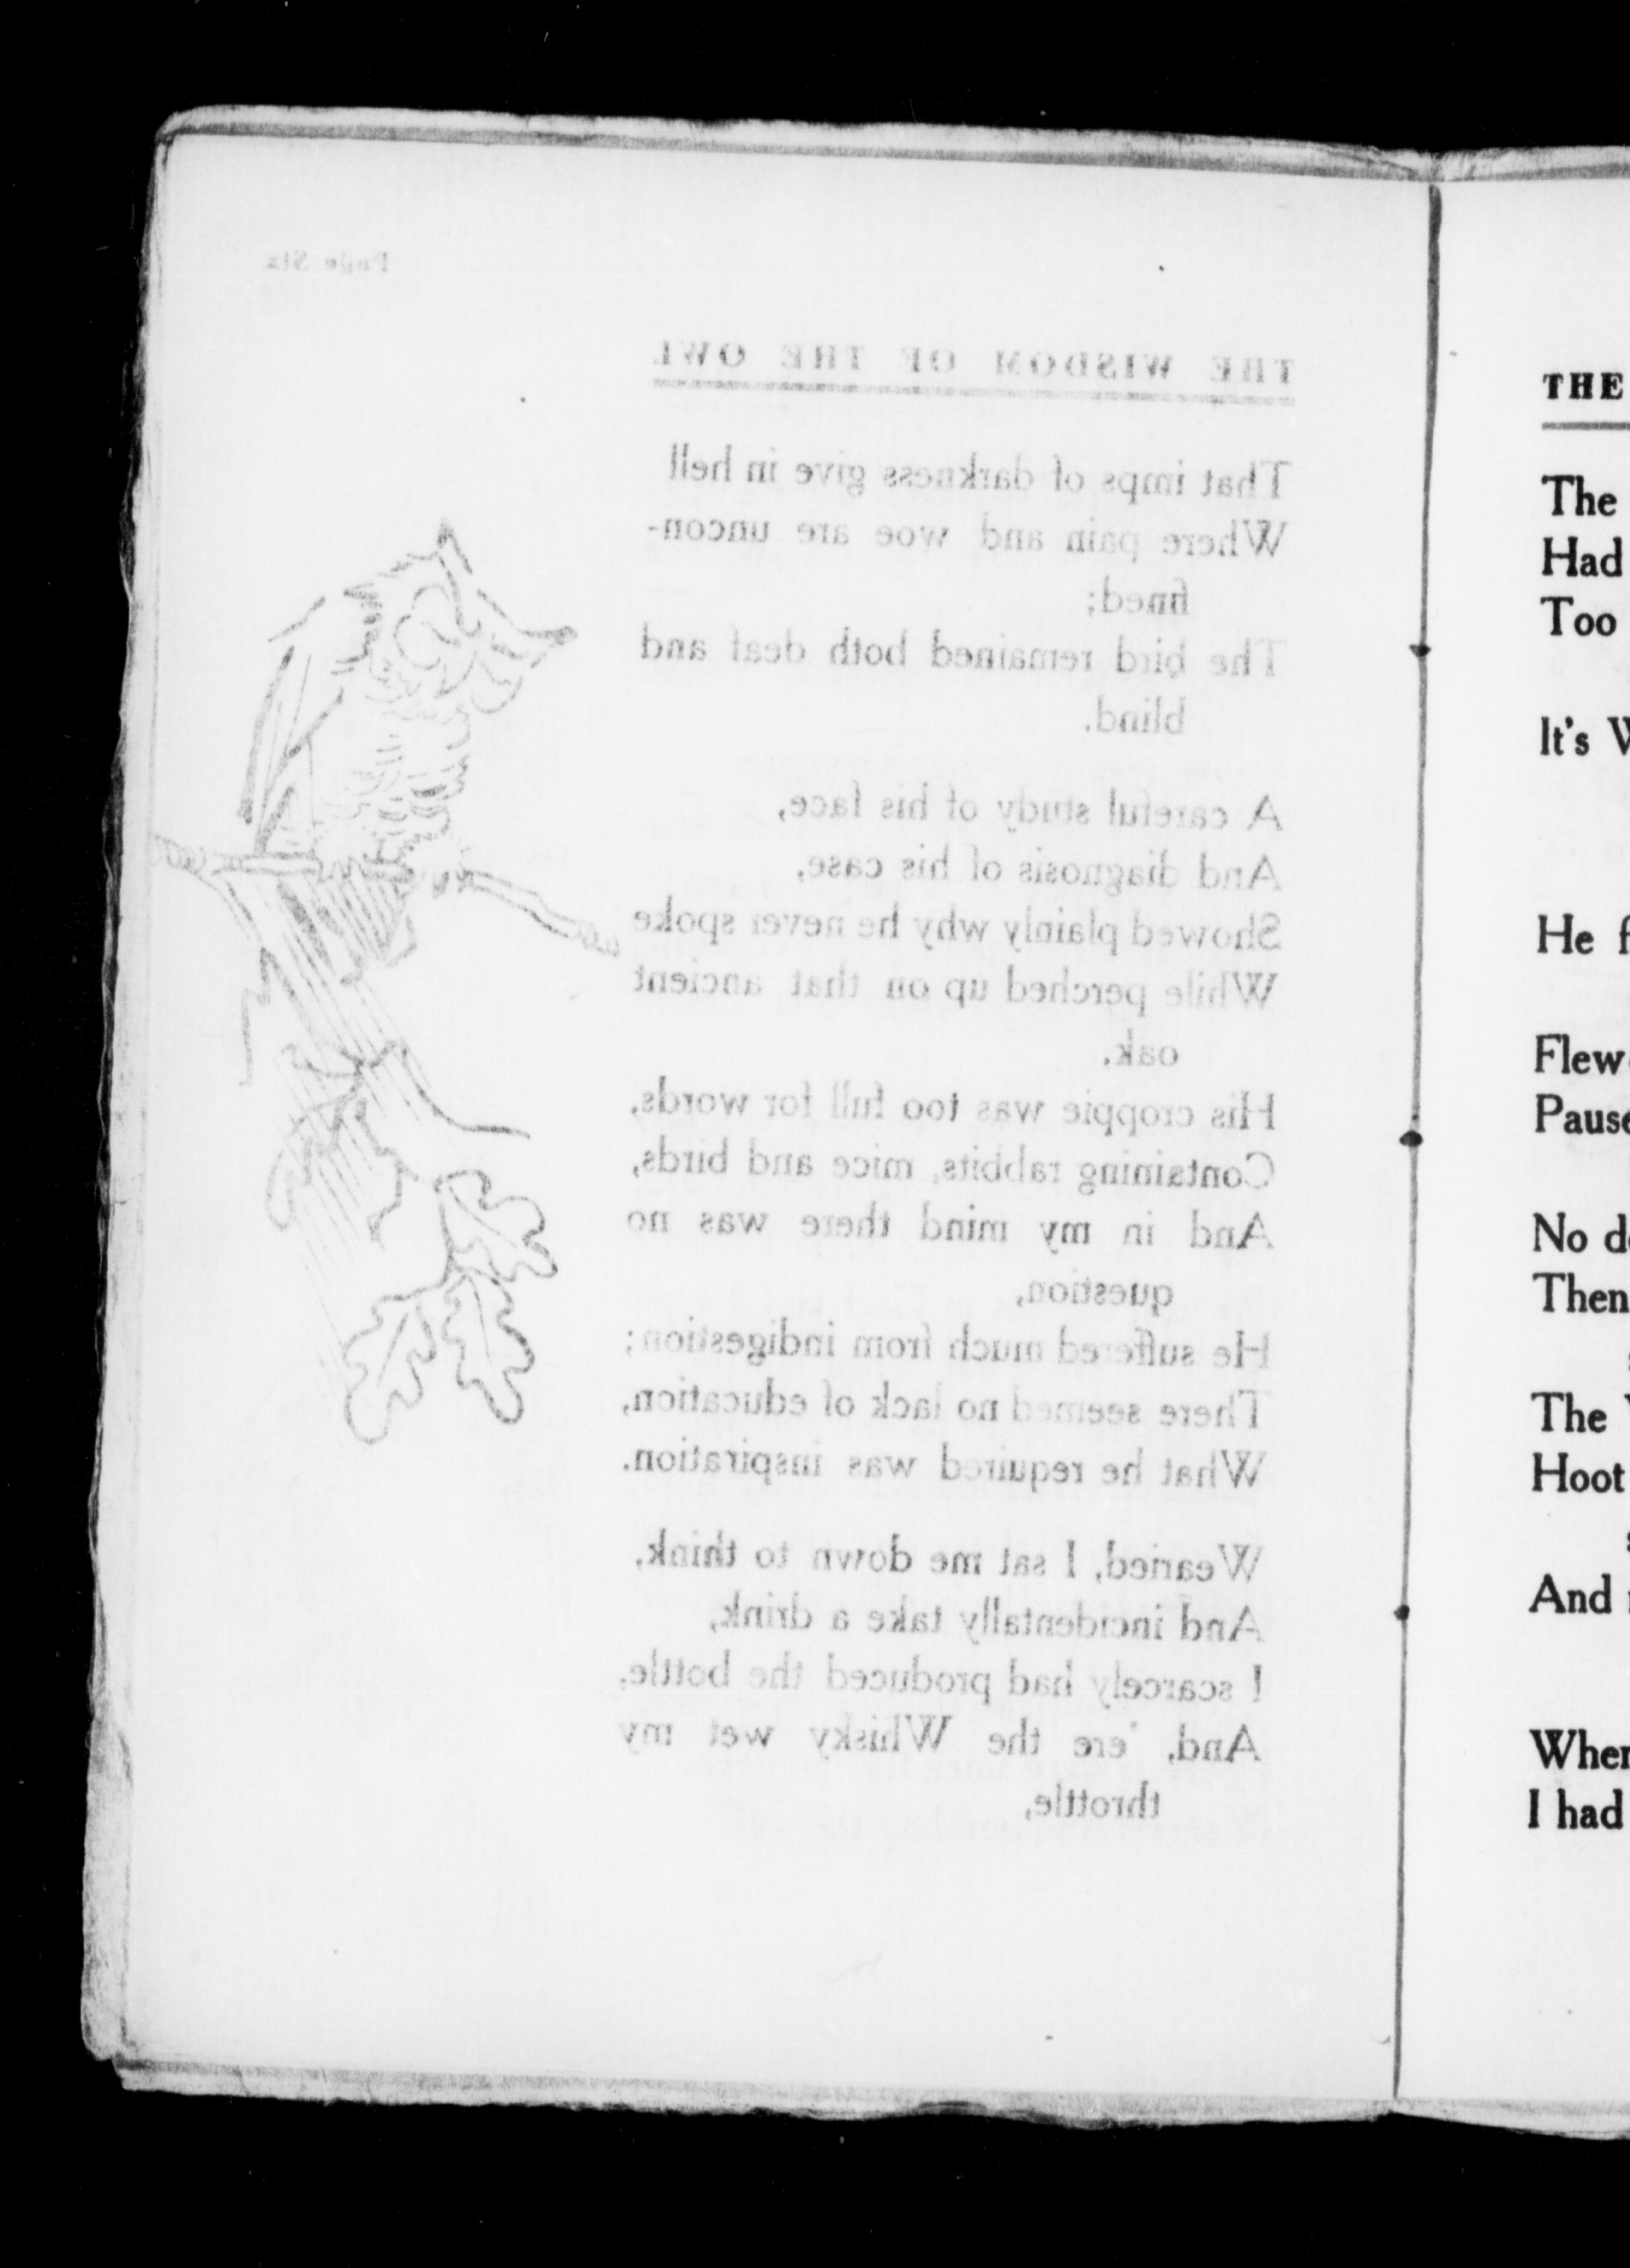 Page Six
THE WISDOM OF THE OWL
That imps of darkness give in hell
Where pain and woe are uncon-
fined;
The bird remained both deaf and
blind.
A careful study of his face,
And diagnosis of his case,
Showed plainly why he never spoke
While perched up on that ancient
oak.
His croppie was too full for words,
Containing rabbits, mice and birds,
And in my mind there was no
question,
He suffered much from indigestion;
There seemed no lack of education,
What he required was inspiration.
Wearied, I sat me down to think,
And incidentally take a drink,
I scarcely had produced the bottle,
And, 'ere the Whisky wet my
throttle,
THE
The
Had
Too
It's
He
Flew
Pause
No
Then
The
Hoot
And
When
I had